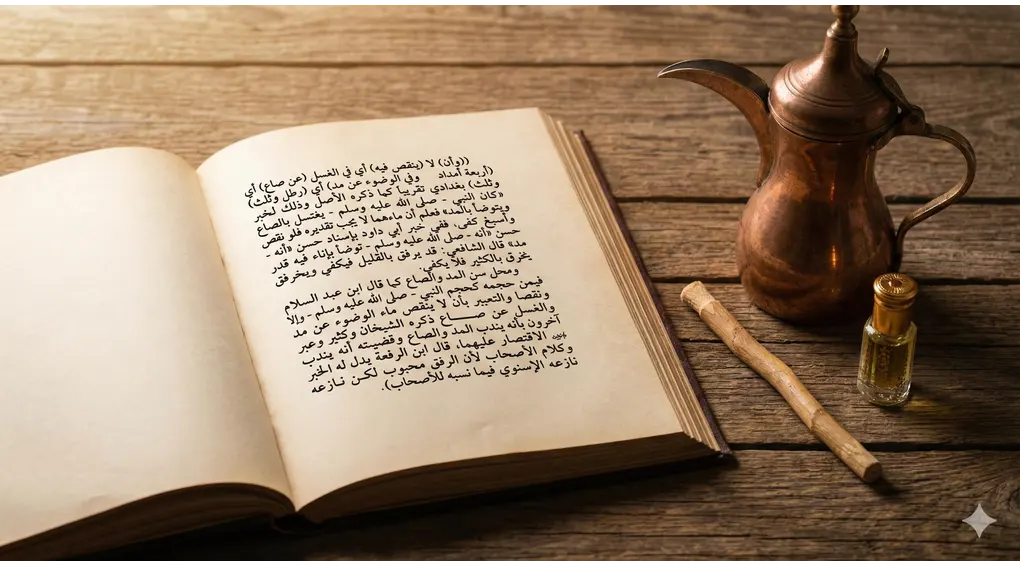 ((وأن) لا (ينقص فيه) أي في الغسل (عن صاع) أي
(أربعة أمداد وفي الوضوء عن مد) أي (رطل وثلث)
وثلث) بغدادي تقريباً كما ذكره الأصل وذلك لخبر
«كان النبي - صلى الله عليه وسلم - يغتسل بالصاع
ويتوضأ بالمد» فعلم أن ماءهما لا يجب تقديره فلو نقص
وأسبغ كفى، ففي خبر أبي داود بإسناد حسن «أنه -
حسن «أنه - صلى الله عليه وسلم - توضأ بإناء فيه قدر
مد» قال الشافعي: قد يرفق بالقليل فيكفي ويخرفق
يخرق بالكثير فلا يكفي.
ومحل سن المد والصاع كما قال ابن عبد السلام
فيمن حجمه كحجم النبي - صلى الله عليه وسلم - وإلا
ونقصا والتعبير بأن لا ينقص ماء الوضوء عن مد
والغسل عن صاع ذكره الشيخان وكثير وعبر
آخرون بأنه يندب المد والصاع وقضيته أنه يندب
الاقتصار عليهما، قال ابن الرفعة يدل له الخبر
وكلام الأصحاب لأن الرفق محبوب لكن نازعه
نازعه الإسنوي فيما نسبه للأصحاب).